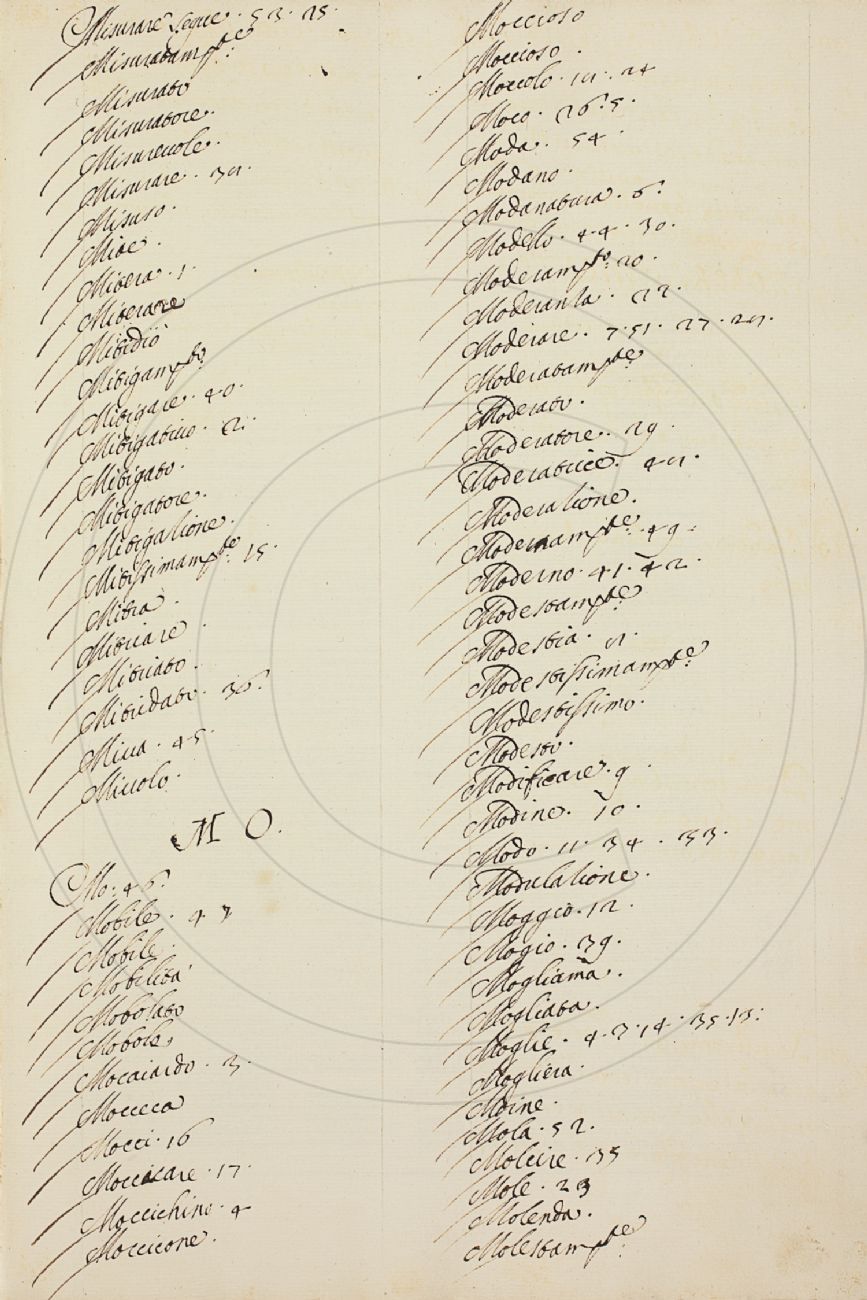 Misurare segue. 53. 25.
Misuratam.te
Misurato
Misuratore.
Misurevole.
Misurare. 30.
Misuso.
Mite.
Mitera. 1.
Miterare
Mitidio
Mitigam.to
Mitigare. 40.
Mitigativo. 2.
Mitigato.
Mitigatore.
Mitigazione.
Mitissimam.te 15.
Mitra.
Mitriare.
Mitriato.
Mitridato. 36.
Miva. 45.
Mivolo.
M O.
Mo. 46.
Mobile. 4. 7
Mobile.
Mobilità
Mobolato
Mobole
Mocaiardo. 3.
Mocceca
Mocci. 16
Moccicare. 17.
Moccichino. 4
Moccicone.
Moccioso
Moccioso.
Moccolo. 24
Moco. 26. 5.
Moda. 54.
Modano.
Modanatura. 6.
Modello. 44. 30.
Moderam.to 20.
Moderanza. 22.
Moderare. 7. 51. 27.
Moderatam.te
Moderato.
Moderatore. 29.
Moderatrice.
Moderazione.
Modernam.te 49.
Moderno. 41. 42.
Modestam.te
Modestia.
Modestissimam.te
Modestissimo.
Modesto.
Modificare. 9.
Modine. 10.
Modo. 11. 34. 33.
Modulazione.
Moggio. 12.
Mogio. 39.
Mogliama.
Mogliata.
Moglie. 4. 7. 14. 35. 13.
Mogliera.
Moine.
Mola. 52.
Molcire. 35
Mole. 23
Molenda.
Molestam.te